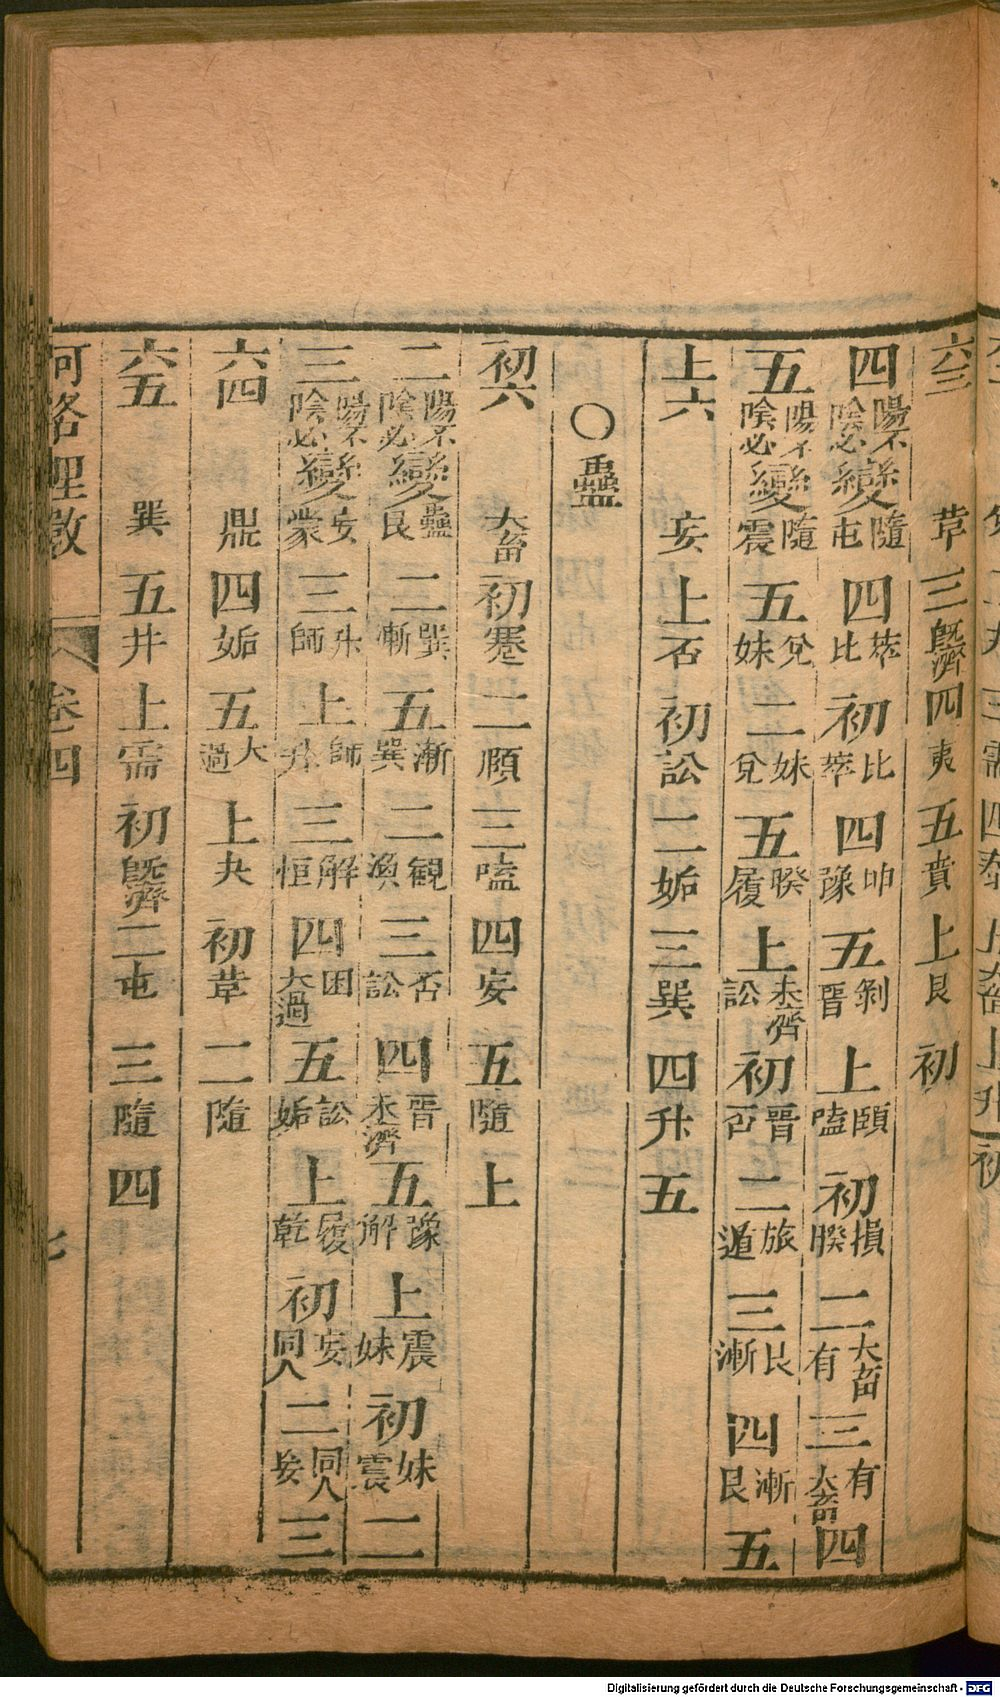 六三 革 三 旣濟 四 夷 五 賁 上 艮 初
四 陽不陰必 變 隨屯 四 萃比 初 比萃 四 坤豫 五 剝晉 上 頤嗑 初 損睽 二 大畜有 三 有大畜 四
五 陽不陰必 變 隨震 五 兌妹 二 妹兌 五 睽履 上 未濟訟 初 晉否 二 旅遁 三 艮漸 四 漸艮 五
上六 妄 上 否 初 訟 二 姤 三 巽 四 升 五
○蠱
初六 大畜 初 蹇 二 頤 三 嗑 四 妄 五 隨 上
二 陽不陰必 變 蠱艮 二 巽漸 五 漸巽 二 觀渙 三 否訟 四 晉未濟 五 豫解 上 震妹 初 妹震 二
三 陽不陰必 變 妄蒙 三 升師 上 師升 三 解恒 四 困大過 五 訟姤 上 履乾 初 妄同人 二 同人妄 三
六四 鼎 四 姤 五 大過 上 夬 初 革 二 隨
六五 巽 五 井 上 需 初 旣濟 二 屯 三 隨 四
河洛理數 卷四 七
Digitalisierung gefördert durch die Deutsche Forschungsgemeinschaft - DFG